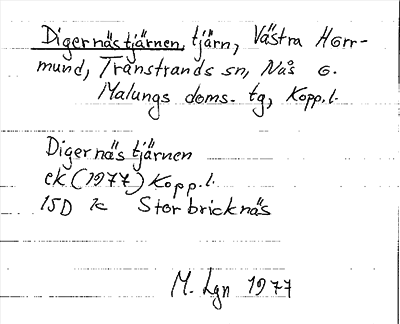 Digernästjärnen, tjärn, Västra Horr-
mund, Transtrands sn, Nås o.
Malungs doms. tg, Kopp. l.
Digernästjärnen
ek (1977) Kopp. l.
15D 1c Storbricknäs
M. Lgn 1977